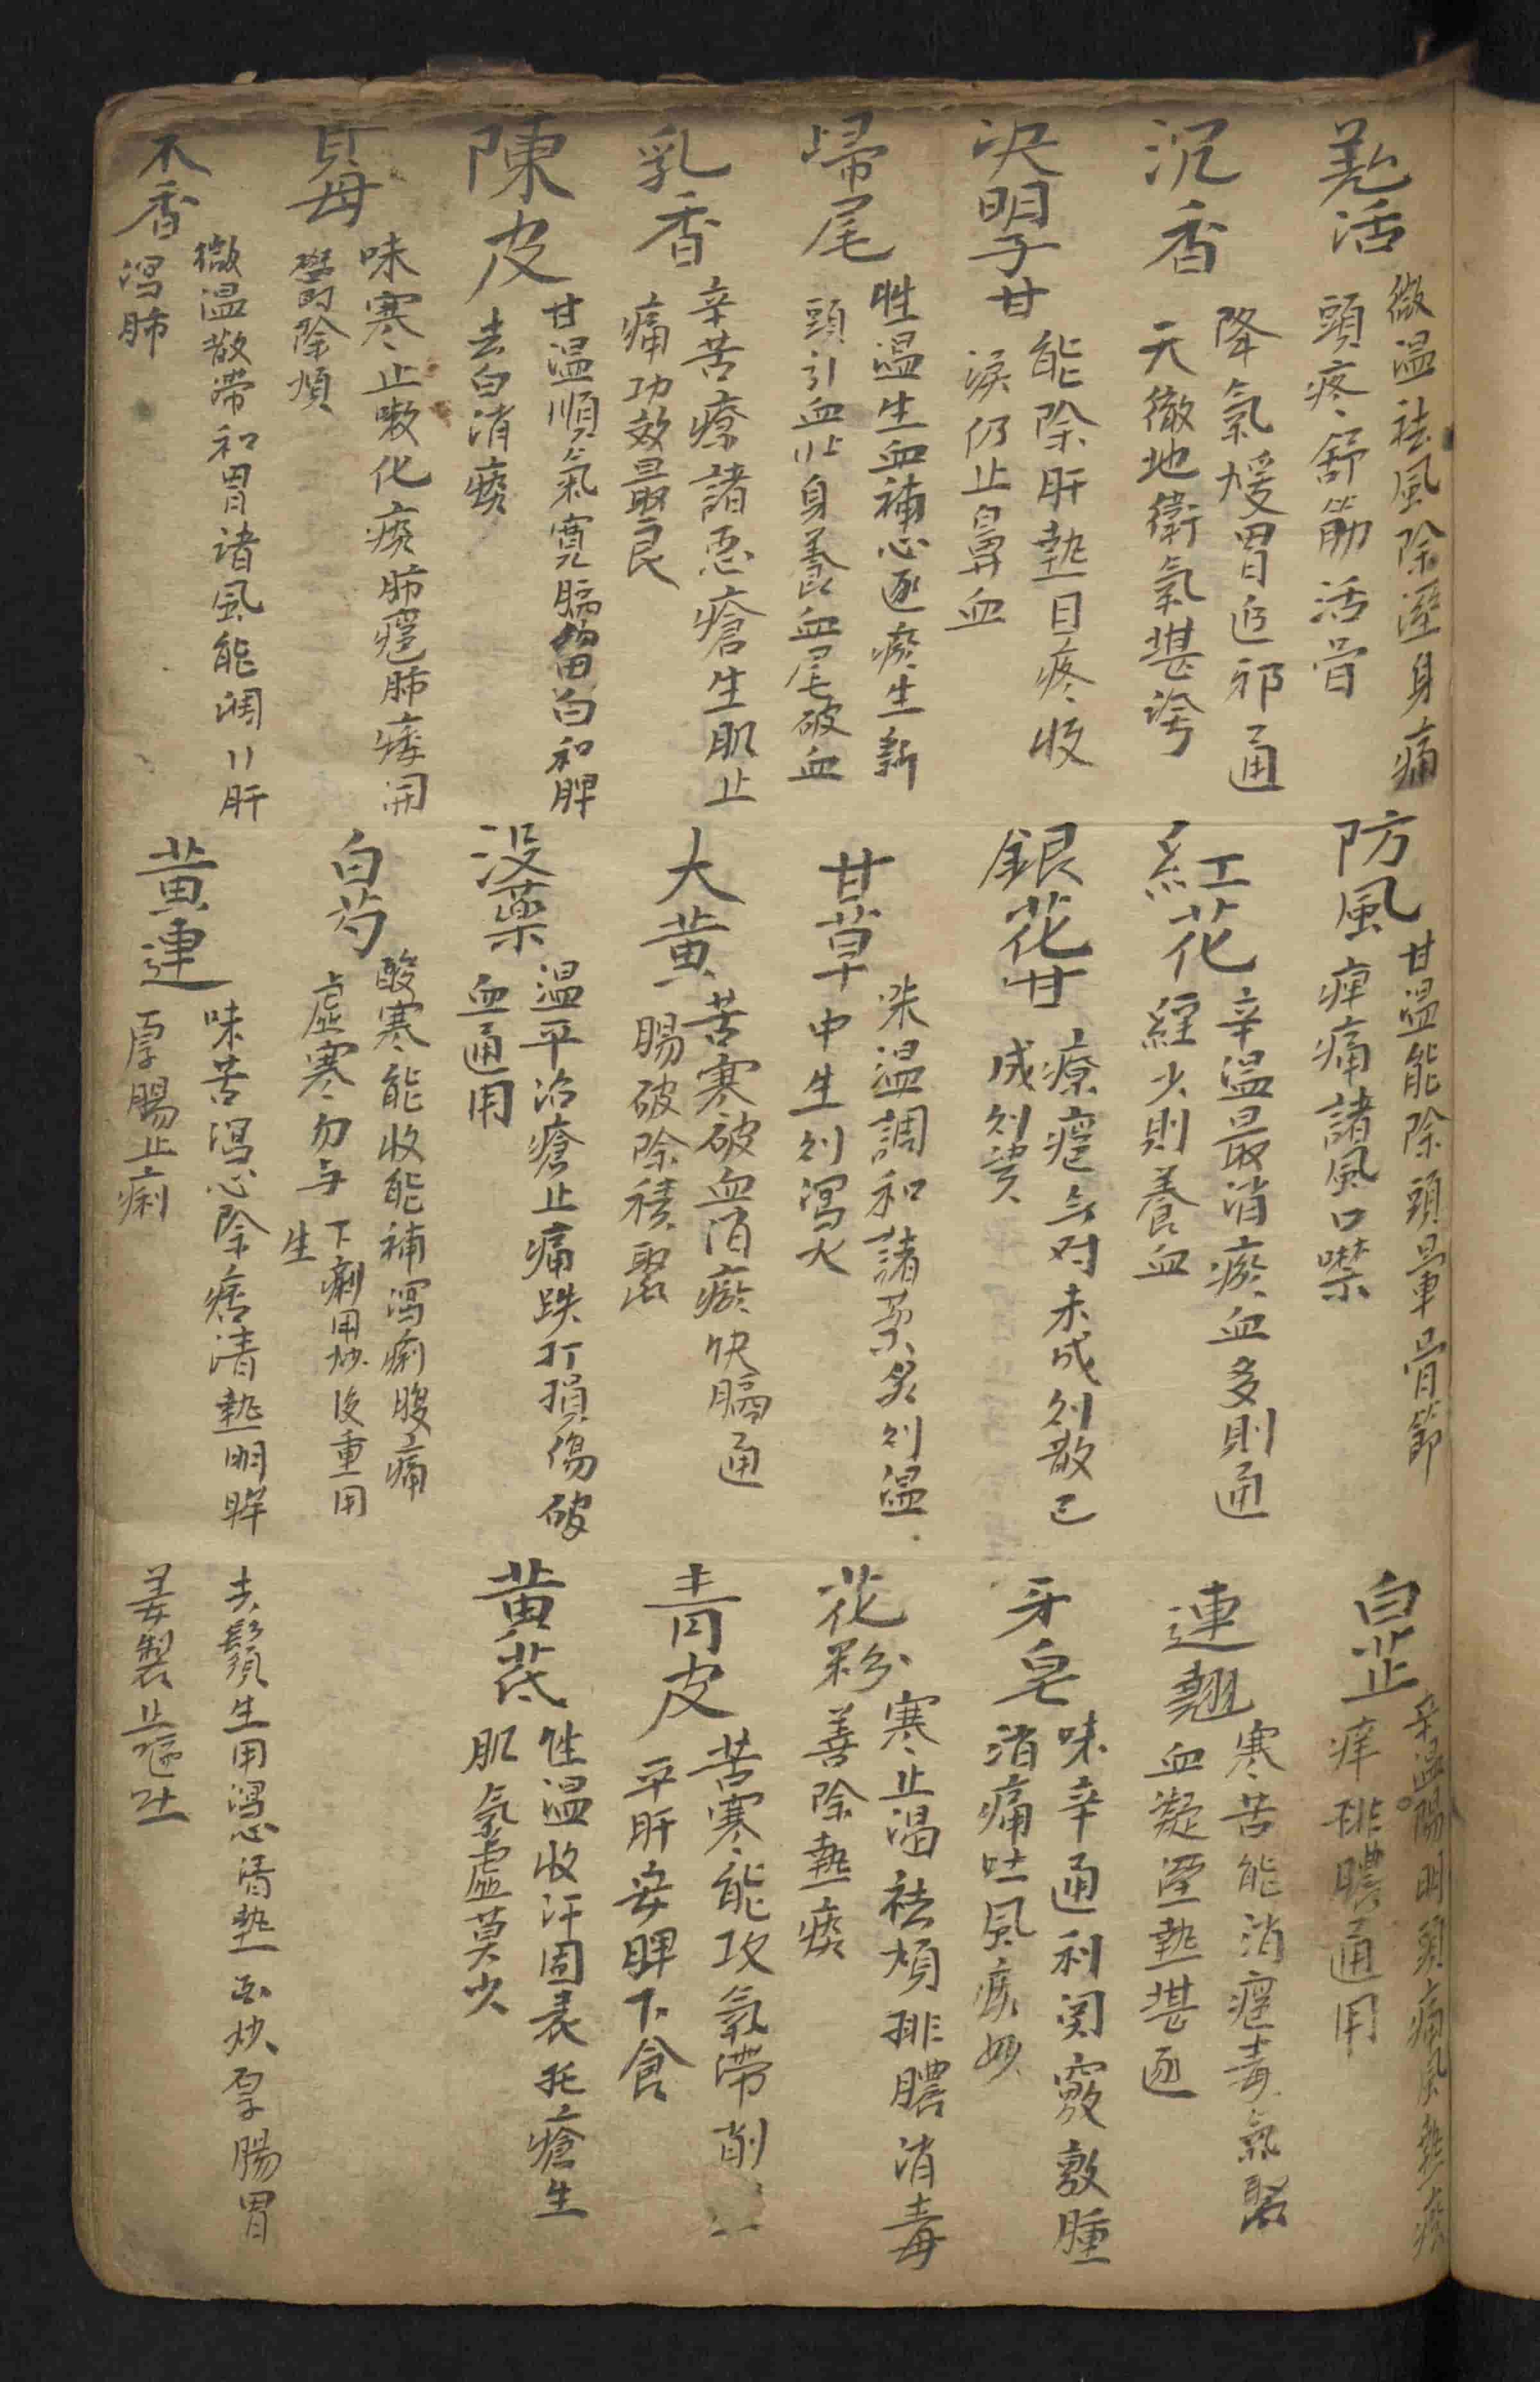 羌活
微温祛風除溼身痛
頭疼舒筋活骨
防風
甘温能除頭暈骨節
痺痛諸風口噤
白芷
辛温陽明頭痛風熱瘙
痒排膿通用
沉香
降氣煖胃追邪通
天徹地衛氣堪誇
紅花
辛温最消瘀血多則通
經少則養血
連翹
寒苦能消癰毒氣聚
血凝溼熱堪逐
決明子甘
能除肝熱目疼收
淚仍止鼻血
銀花甘
療癰与对未成刘散已
成刘潰
牙皂
味辛通利関竅敷腫
消痛吐風痰妙
歸尾
性温生血補心逐瘀生新
頭引血止身養血尾破血
甘草
味温調和諸药炙刘温
中生刘瀉火
花粉
寒止渴祛煩排膿消毒
善除熱痰
乳香
辛苦療諸惡瘡生肌止
痛功效最良
大黃
苦寒破血消瘀快膈通
腸破除積聚
青皮
苦寒能攻氣滯削
平肝安脾下食
陳皮
甘温順氣寬膈留白和脾
去白消痰
没藥
温平治瘡止痛跌打損傷破
血通用
黃茋
性温收汗固表托瘡生
肌氣虛莫少
貝母
味寒止嗽化痰肺癰肺痿開
鬱除煩
白芍
酸寒能收能補瀉痢腹痛
虛寒勿与
下痢用炒後重用
生
木香
微温散滯和胃诸風能调〢肝
瀉肺
黃連
味苦瀉心除痞清熱明眸
厚腸止痢
去鬚生用瀉心清熱 酒炒厚腸胃
姜製止嘔吐